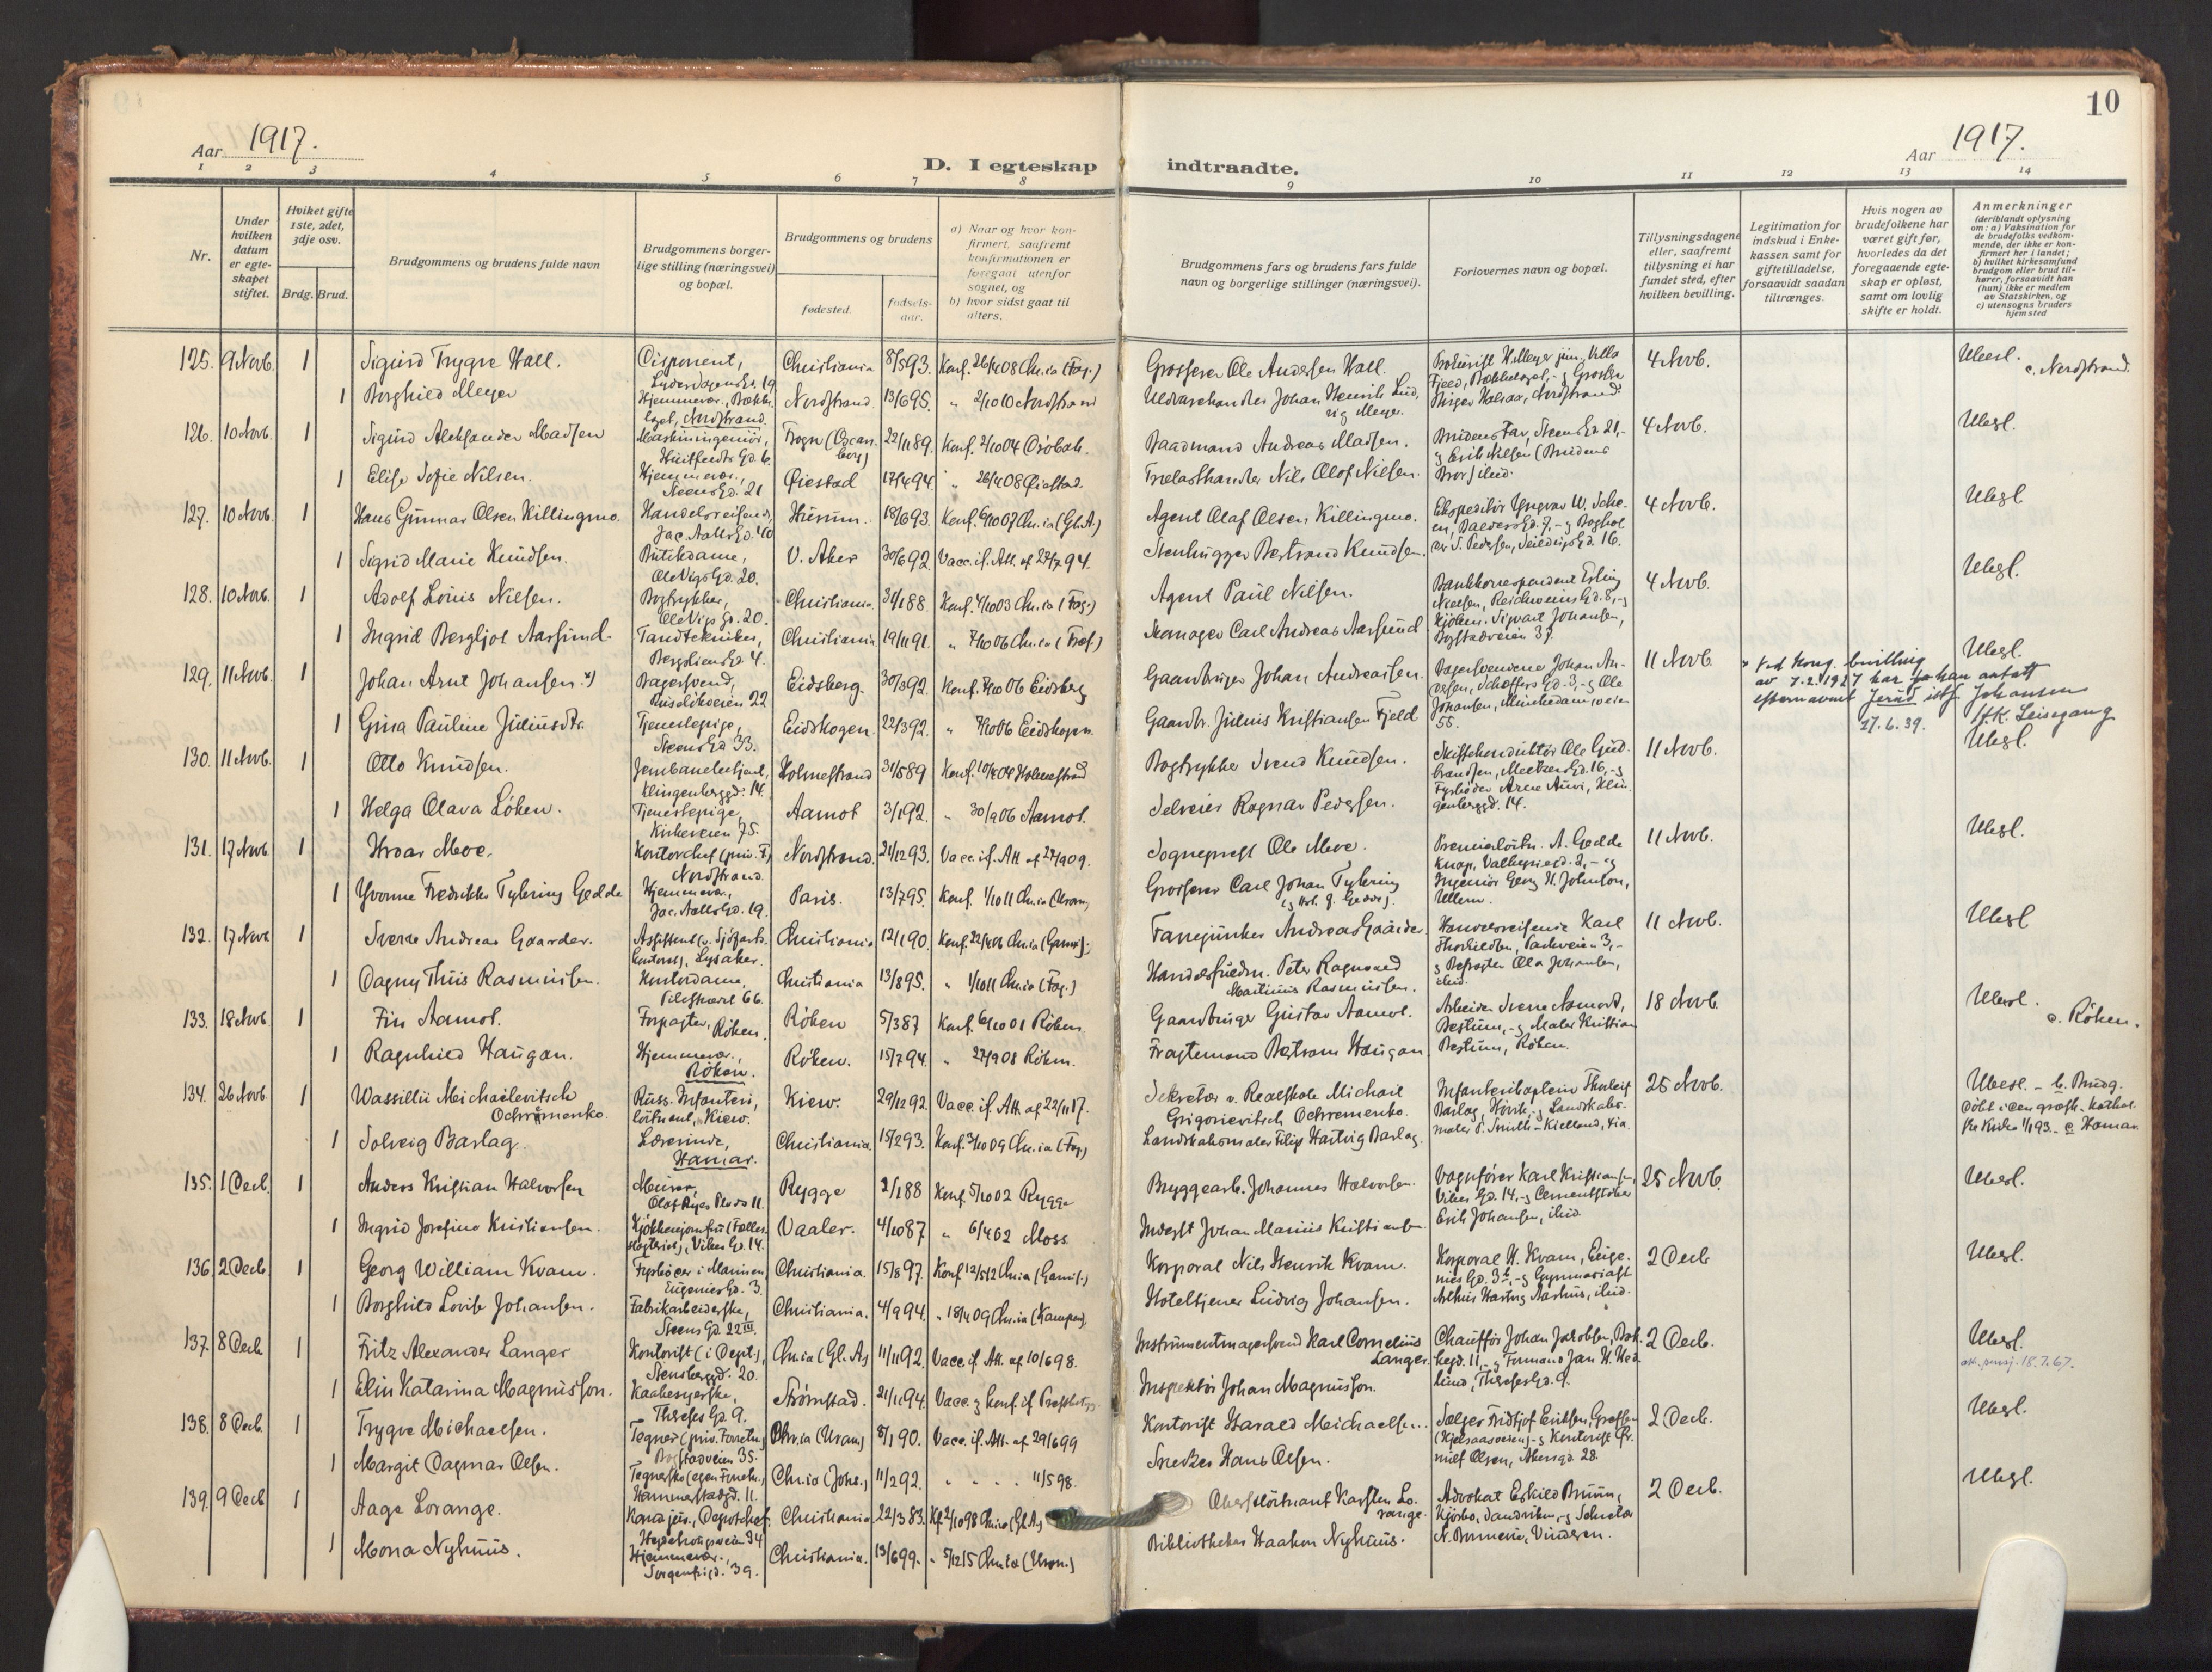 10
Aar 1917.
Aar 1917.
D. I egteskap indtraadte.
1 2 3 4 5 6 7 8 9 10 11 12 13 14
Nr.
Under hvilken datum er egteskapet stiftet.
Hvilket gifte 1ste, 2det, 3dje osv.
Brdg. Brud.
Brudgommens og brudens fulde navn
Brudgommens borgerlige stilling (næringsvei) og bopæl.
Brudgommens og brudens
fødested.
fødselsaar.
a) Naar og hvor konfirmert, saafremt konfirmationen er foregaat utenfor sognet, og
b) hvor sidst gaat til alters.
Brudgommens fars og brudens fars fulde navn og borgerlige stillinger (næringsvei).
Forlovernes navn og bopæl.
Tillysningsdagene eller, saafremt tillysning ei har fundet sted, efter hvilken bevilling.
Legitimation for indskud i Enkekassen samt for giftetilladelse, forsaavidt saadan tiltrænges.
Hvis nogen av brudefolkene har været gift før, hvorledes da det foregaaende egteskap er opløst, samt om lovlig skifte er holdt.
Anmerkninger
(deriblandt oplysning om: a) Vaksination for de brudefolks vedkommende, der ikke er konfirmert her i landet;
b) hvilket kirkesamfund brudgom eller brud tilhører, forsaavidt han (hun) ikke er medlem av Statskirken, og
c) utensogns bruders hjemsted
125. 9 Novb. 1 Sigurd Trygve Hall. Disponent, Christiania 8/5 93. Konf. 26/4 08 Chr.ia (Fag.) Grosserer Ole Andersen Hall. 4 Novb. Ubesl. c. Nordstrand.
1 Borghild Meyer Hjemmevær., Nordstrand. Nordstrand 13/6 95. " 2/10 10 Nordstrand Johan Henrik Ludvig Meyer. Nordstrand
126. 10 Novb. 1 Sigurd Aleksander Madsen Maskiningeniør, Huitfeldts Gd. 6. Frogn (Oscarsborg) 22/11 89. Konf. 2/10 04 Dröbak. Baadmand Andreas Madsen. Brudens Far, Steens Gd. 21,- 4 Novb. Ubesl.
1 Elise Sofie Nilsen. Hjemmevær., Steens Gd. 21 Øiestad 17/4 94. " 26/4 08 Øiestad. Trælasthandler Nils Olof Nielsen. og Erik Nilsen (Brudens Bror) ibid.
127. 10 Novb. 1 Hans Gunnar Olsen Killingmo. Handelsreisende, Jac. Aalls Gd. 40 Hurum. 18/6 93. Konf. 6/10 07 Chr.ia (Gl.A.) Agent Olaf Olsen Killingmo. 4 Novb. Ubesl
1 Sigrid Marie Knudsen. Butikdame, Ole Vigs Gd. 20. V. Aker 30/6 92 Vacc. if. Att. af 27/7 94. Stenhugger Bertrand Knudsen.
128. 10 Novb. 1 Adolf Louis Nilsen. Bogtrykker, Ole Vigs Gd. 20. Christiania. 31/1 88. Konf. 4/10 03 Chr.ia (Fag.) Agent Paul Nilsen. Bankkorrespondent Erling Nielsen, 4 Novb. Ubesl.
1 Ingrid Bergljot Aarsund Tandtekniker, Bergsliens Gd. 4. Christiania 19/11 91. " 7/10 06 Chr.ia (Tref.) Manager Carl Andreas Aarsund Sigvart Johansen, Bogstadveien 37.
129. 11 Novb. 1 Johan Arnt Johansen. *) Bagersvend, Ruselökveien 22 Eidsberg. 30/3 92. Konf. 7/10 06 Eidsberg Gaardbruger Johan Andreassen. Bagersvendene Johan Andersen, Scheffers Gd. 3,- og Ole Johansen, Munkedamsveien 55. 11 Novb. Ubesl.
* Ved kong. bevilling av 7.2.1927 har Johan antatt efternavnet Jerud istf. Johansen
27.6.39. H.K. Leisegang
1 Gina Pauline Juliusdtr. Tjenestepige, Steens Gd 33. Eidskogen. 22/3 92. " 7/10 06 Eidskogen. Gaardbr. Julius Kristiansen Fjeld
130. 11 Novb. 1 Otto Knudsen. Jernbanebetjent, Klingenberggd. 14. Holmestrand 31/5 89 Konf. 10/4 04 Holmestrand Bogtrykker Svend Knudsen. Skiftekonduktör Ole Gudbrandsen, Meltzers Gd. 16,- og Fyrböder Arne Auvi, Klingenberggd. 14. 11 Novb. Ubesl.
1 Helga Olava Löken. Tjenestepige, Kirkeveien 75. Aamot 3/1 92. " 30/9 06 Aamot. Selveier Ragnar Pedersen.
131. 17 Novb. 1 Hroar Moe. Kontorchef (priv. F.) Nordstrand. Nordstrand. 21/12 93. Vacc. if. Att af 27/9 09. Sogneprest Ole Moe. Premierløitn. A. Gedde 11 Novb. Ubesl.
1 Yvonne Fredrikke Tybring Gedde Hjemmevær., Jac. Aalls Gd. 19. Paris. 13/7 95. Konf. 1/10 11 Chr.ia (Uran.) Grosserer Carl Johan Tybring Ingeniør Georg H. Johnson, Ullern.
132. 17 Novb 1 Sverre Andreas Gaarder. Assistent (v. Sjöfartskontoret), Lysaker. Christiania 12/1 90. Konf. 22/4 06 Chr.ia (Gamleb.) Fanejunker Andreas Gaarder Handelsreisende Karl Thorkildsen, Parkveien 3,- 11 Novb. Ubesl
1 Dagny Thiis Rasmussen. Kontordame, Pilestrædet 66. Christiania 13/8 95. " 1/10 11 Chr.ia (Fag.) Handelsfuldm. Peter Ragnvald Martinius Rasmussen. og Befragter Ola Johansen, ibid.
133. 18 Novb. 1 Fin Aamot. Forpagter, Röken. Röken 5/3 87 Konf. 6/10 01 Röken. Gaardbruger Gustav Aamot. Arbeider Sverre Aamodt, Bestum,- og Maler Kristian Bestum, Röken. 18 Novb. Ubesl. c. Röken.
1 Ragnhild Haugan. Hjemmevær., Röken. Röken. 15/7 94. " 27/9 08 Röken. Fragtemand Bertram Haugan
134. 26 Novb. 1 Wassillii Michaelevitsch Ochremenko. Russ. Infanteriløitnant, Kiew. Kiew. 29/12 92. Vacc. if. Att. af 22/11 17. Sekretær v. Realskole Michail Grigorievitsch Ochremenko. Infanterikaptein Thorleif Barlag, Hövik,- og Landskabsmaler P. Smith-Kielland, Xia. 25 Novb. Ubesl. - b. Brudg. döbt i den græsk-kathol. Kirke 1/1 93. - c Hamar
1 Solveig Barlag. Lærerinde, Hamar. Christiania. 15/2 93. Konf. 3/10 09 Chr.ia (Fag.) Landskabsmaler Filip Hartvig Barlag.
135. 1 Decb. 1 Anders Kristian Halvorsen Murer, Olaf Ryes Plads 11. Rygge 2/1 88 Konf. 5/10 02 Rygge Bryggearb. Johannes Halvorsen. Vognfører Karl Kristiansen, Vibes Gd. 14,- og Cementstøber Erik Johansen, ibid. 25 Novb. Ubesl.
1 Ingrid Josefine Kristiansen. Kjökkenjomfru (Fællesslagteriet), Vibes Gd. 14. Vaaler. 4/10 87 " 6/4 02 Moss Inderst Johan Marius Kristiansen
136. 2 Decb. 1 Georg William Kvam. Fyrböder i Marinen, Eugenies Gd. 3. Christiania. 15/8 97. Konf 12/5 12 Chr.ia (Gamleb.) Korporal Nils Henrik Kvam. Korporal H. Kvam, Eugenies Gd. 3,- og Gymnasiast Arthur Hartvig Aarhus, ibid. 2 Decb Ubesl.
1 Borghild Lovise Johansen. Fabrikarbeiderske, Steens Gd. 22 III. Christiania. 4/9 94. " 18/4 09 Chr.ia (Kampen). Hoteltjener Ludvig Johansen.
137. 8 Decb 1 Fritz Alexander Langer Kontorist (i Dept.), Stensberggd. 20. Chr.ia (Gl. A.) 11/11 92. Vacc if. Att. af 10/6 98. Instrumentmagersvend Karl Cornelius Langer. Chauffør Johan Jakobsen, 2 Decb. Ubesl. att. pensj. 18.7.67.
1 Elin Katarina Magnusson. Kaabesyerske, Thereses Gd. 9. Strömstad. 21/11 94. Vacc. og konf. if Prestbetyg. Inspektör Johan Magnusson. Thereses Gd. 9.
138. 8 Decb. 1 Trygve Michaelsen. Tegner (priv. Forretn.) Bogstadveien 35. Chr.ia (Uran.) 8/1 90. Vacc. if. Att. af 29/6 99 Kontorist Harald Michaelsen. Sælger Fridtjof Eriksen, Grefsen (Kjelsaasveien),- og Kontorist 2 Decb. Ubesl.
1 Margit Dagmar Olsen. Tegnerske (egen Forretn.) Hammerstadgd. 11. Chr.ia (Johs.) 11/2 92. " " " " 11/5 98. Snedker Hans Olsen. Olsen, Akersgd. 28.
139. 9 Decb 1 Aage Lorange. Kand. jur., Depotchef, Hegdehaugsveien 34 Christiania 22/3 83. Kf 2/10 98 Chr.ia (Gl.A.) Oberstløitnant Karsten Lorange. Advokat Eskild Bruun, Kjørbo, Sandviken,- og Sekretær 2 Decb. Ubesl.
1 Mona Nyhuus. Hjemmevær., Sorgenfrigd. 39. Christiania. 13/6 99. " 5/12 15 Chr.ia (Uran.) Bibliothekar Haakon Nyhuus. Vinderen.